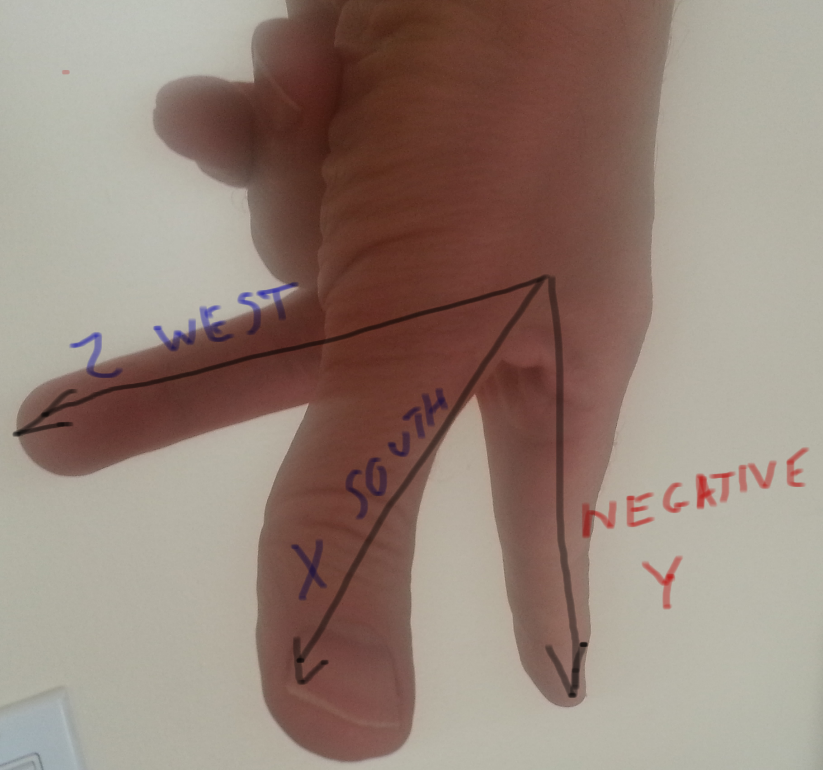 Z WEST
X SOUTH
NEGATIVE
Y